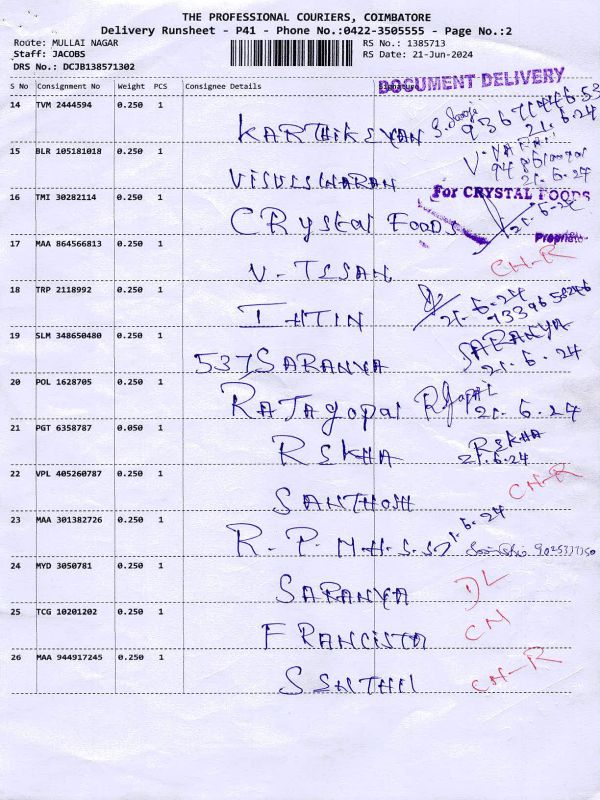 THE PROFESSIONAL COURIERS, COIMBATORE
Delivery Runsheet - P41 - Phone No.:0422-3505555 - Page No.:2
Route: MULLAI NAGAR RS No.: 1385713
Staff: JACOBS RS Date: 21-Jun-2024
DRS No.: DCJB138571302
DOCUMENT DELIVERY
S No Consignment No Weight PCS Consignee Details Signature
14 TVM 2444594 0.250 1
KARTHIKEYAN
21.6.24
15 BLR 105181018 0.250 1
VISULSWARAN
21.6.27
16 TMI 30282114 0.250 1
For CRYSTAL FOODS
CRystal FOODS 21.6.24
Proprietor
17 MAA 864566813 0.250 1
V-TSSAN CN-R
18 TRP 2118992 0.250 1
IHTIN 21.6.24
19 SLM 348650480 0.250 1
537 SARANYA SARANYA
21.6.24
20 POL 1628705 0.250 1
RaJagopal 21.6.24
21 PGT 6358787 0.050 1
REKHA REKHA
21.6.24
22 VPL 405260787 0.250 1
SANTHOSH CN-R
23 MAA 301382726 0.250 1
R.P.M.H.S.S
24 MYD 3050781 0.250 1
SARANYA DL
25 TCG 10201202 0.250 1
FRANCISTA CN
26 MAA 944917245 0.250 1
SENTHIL CN-R